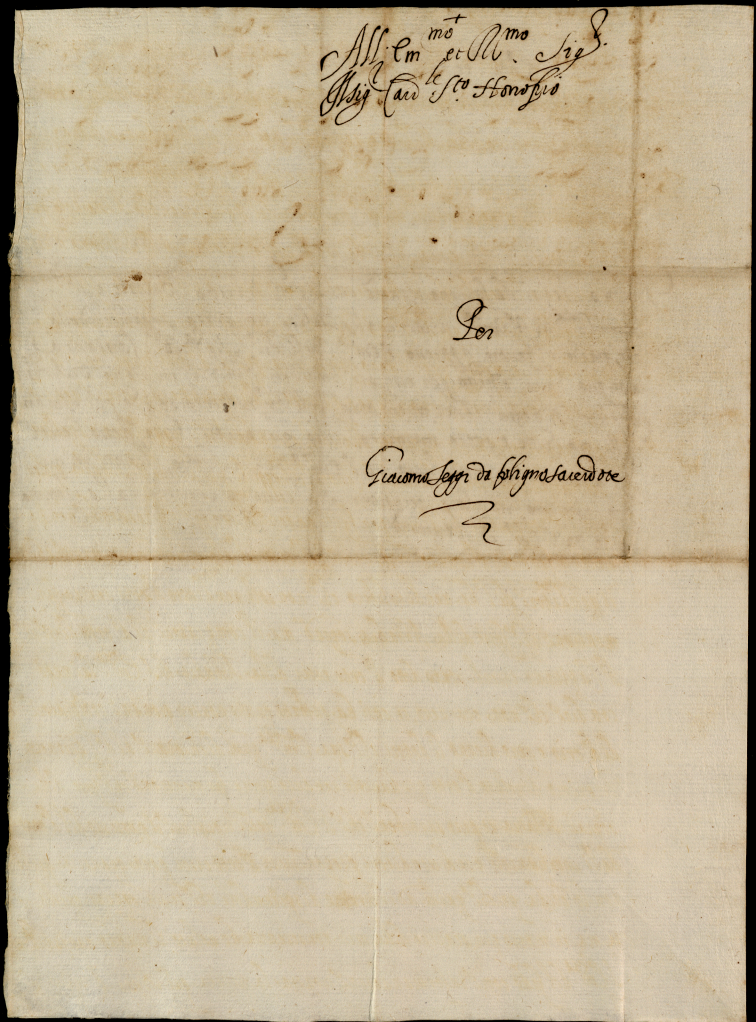 All Em.mo et R.mo Sig.r
Il Sig.r Card.le S.to Honofrio
Per
Giacomo Seggi da foligno sacerdote